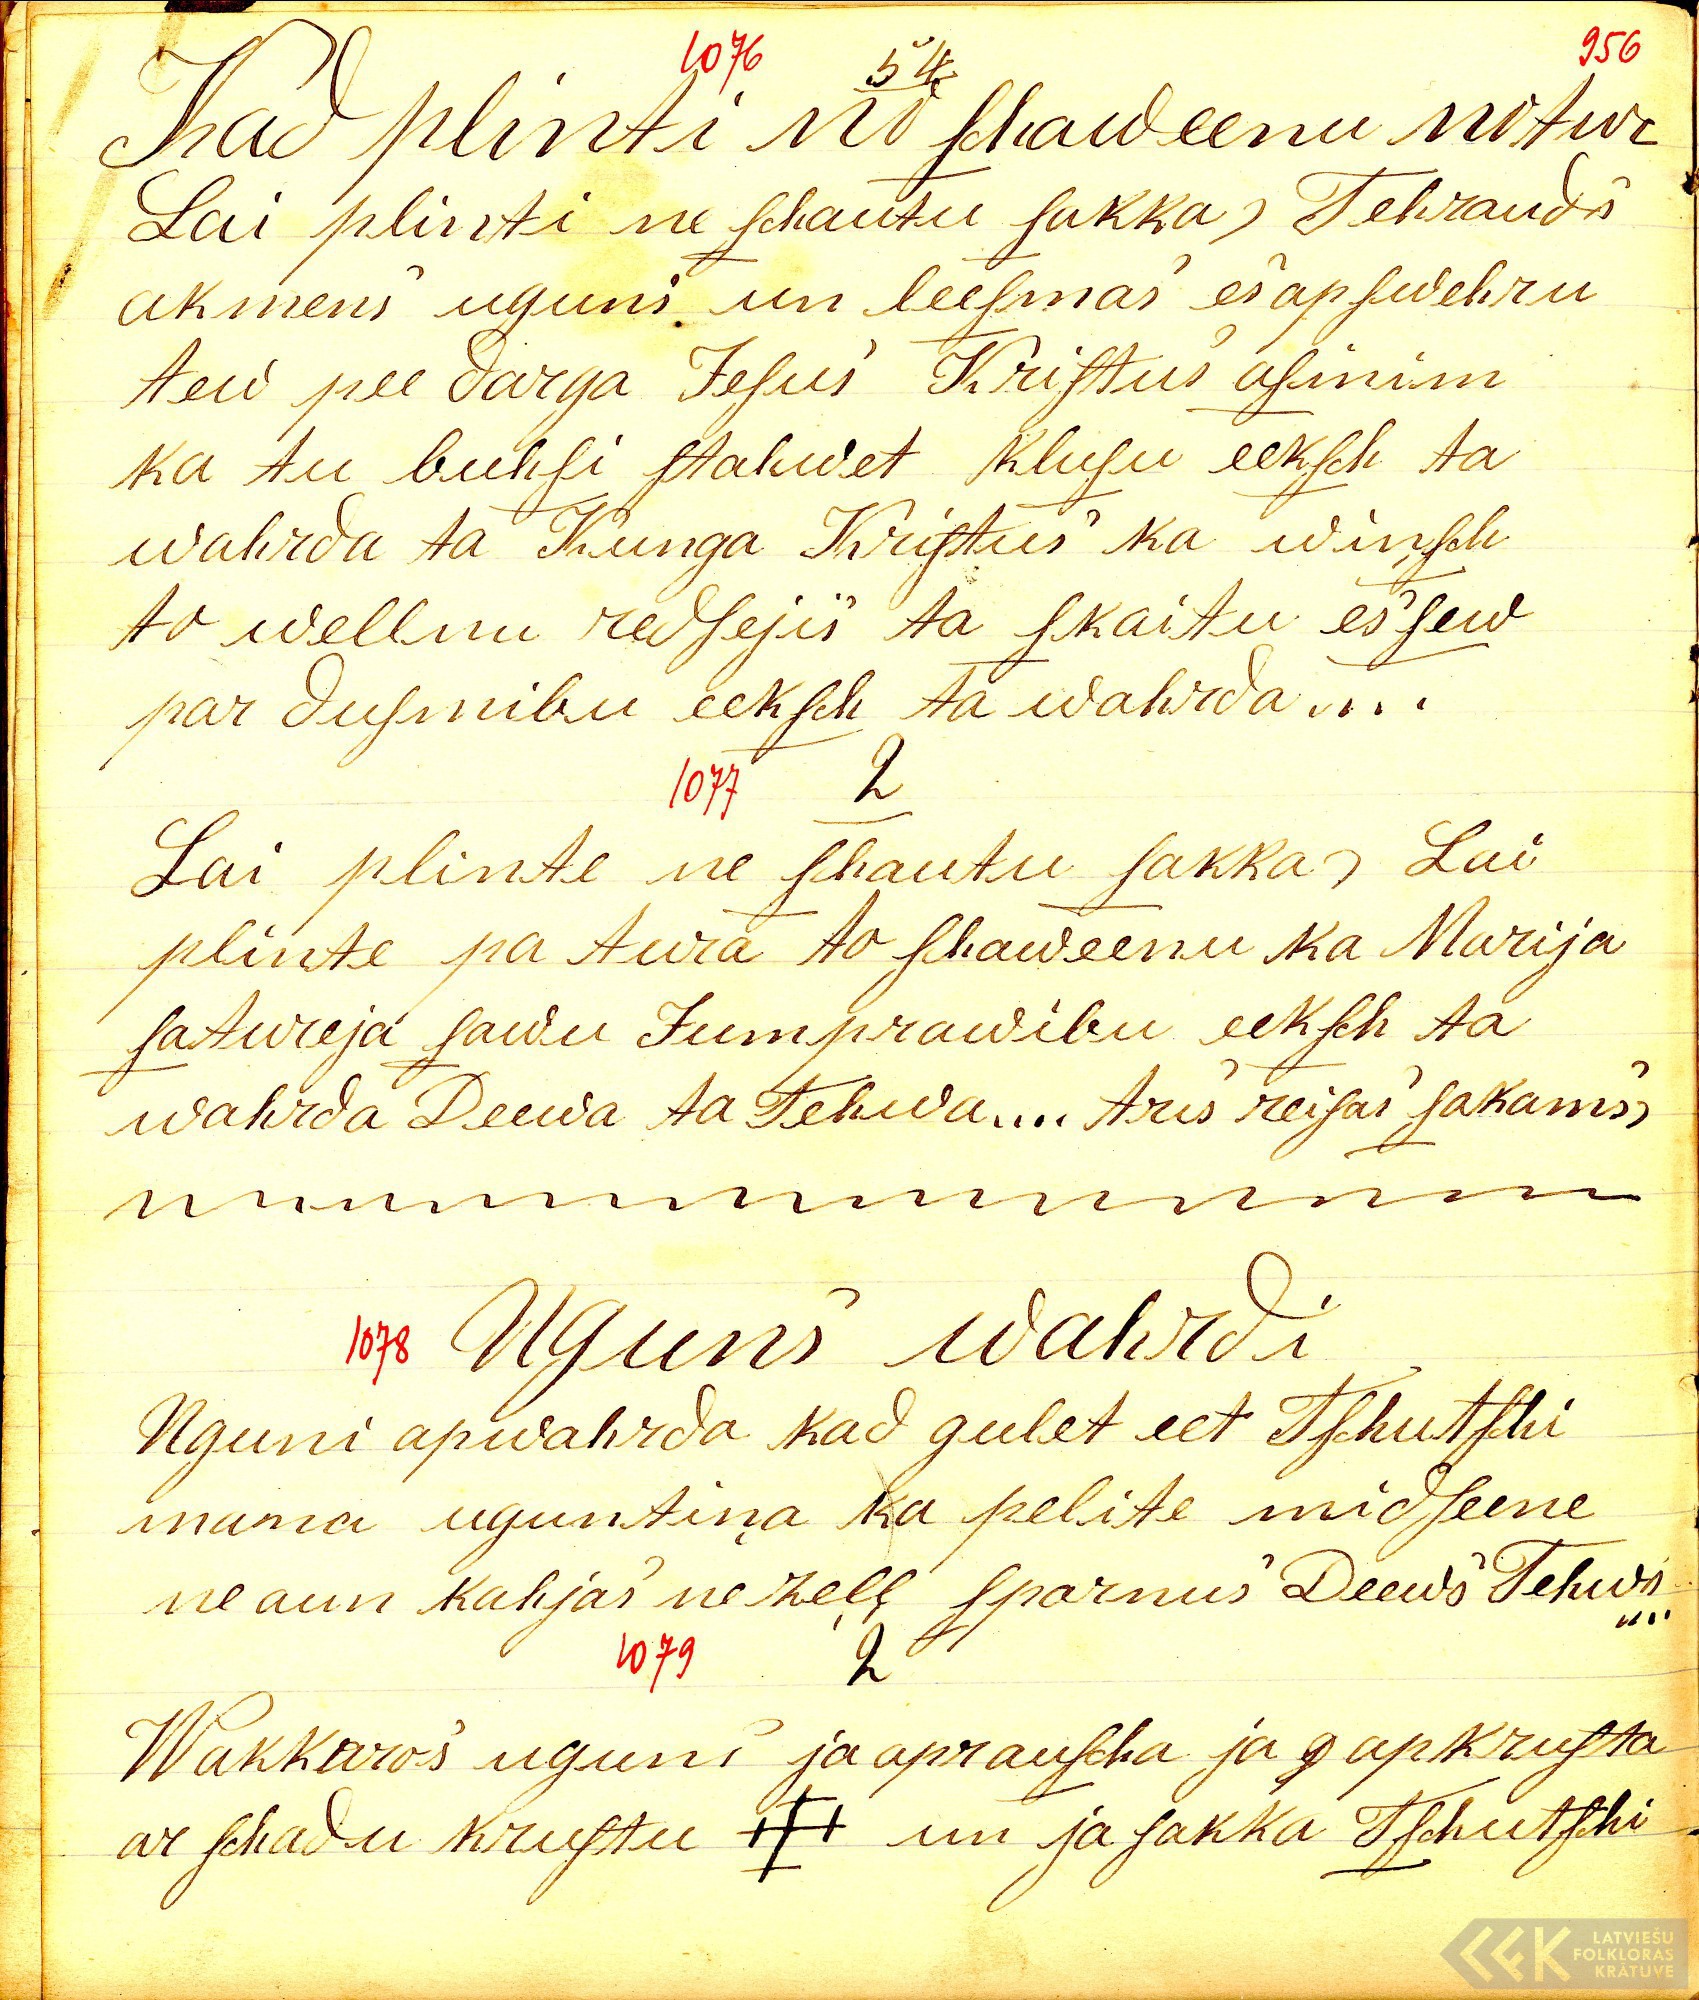 1076 54 956
Kad plinti no ſchaweenu notur
Lai plinti ne ſchautu ſakka, Tehrauds
akmens uguns un leeſmas es apſwehru
tew pee darga Jeſus Kriſtus aſinim
ka tu buhſi ſtahwet kluſu eekſch ta
wahrda ta Kunga Kriſtus ka winſch
to wellnu redſejis ta ſkaitu es ſew
par duſmibu eekſch ta wahrda....
1077 2
Lai plinte ne ſchautu ſakka, Lai
plinte pa tura to ſchaweenu ka Marija
ſatureja ſawu Jumprawibu eekſch ta
wahrda Deewa ta Tehwa.... tris reiſas ſakams,
1078 Uguns wahrdi
Uguni apwahrda kad gulet eet Tſchutſchi
mana uguntiņa ka pelite midſeene
ne aun kahjas ne zeļļ ſparnus Deews Tehws
....
1079 2
Wakkaros uguns ja aprauſcha ja apkruſta
ar ſchadu kruſtu ƗƗƗ un ja ſakka Tſchutſchi
LATVIEŠU
FOLKLORAS
KRĀTUVE